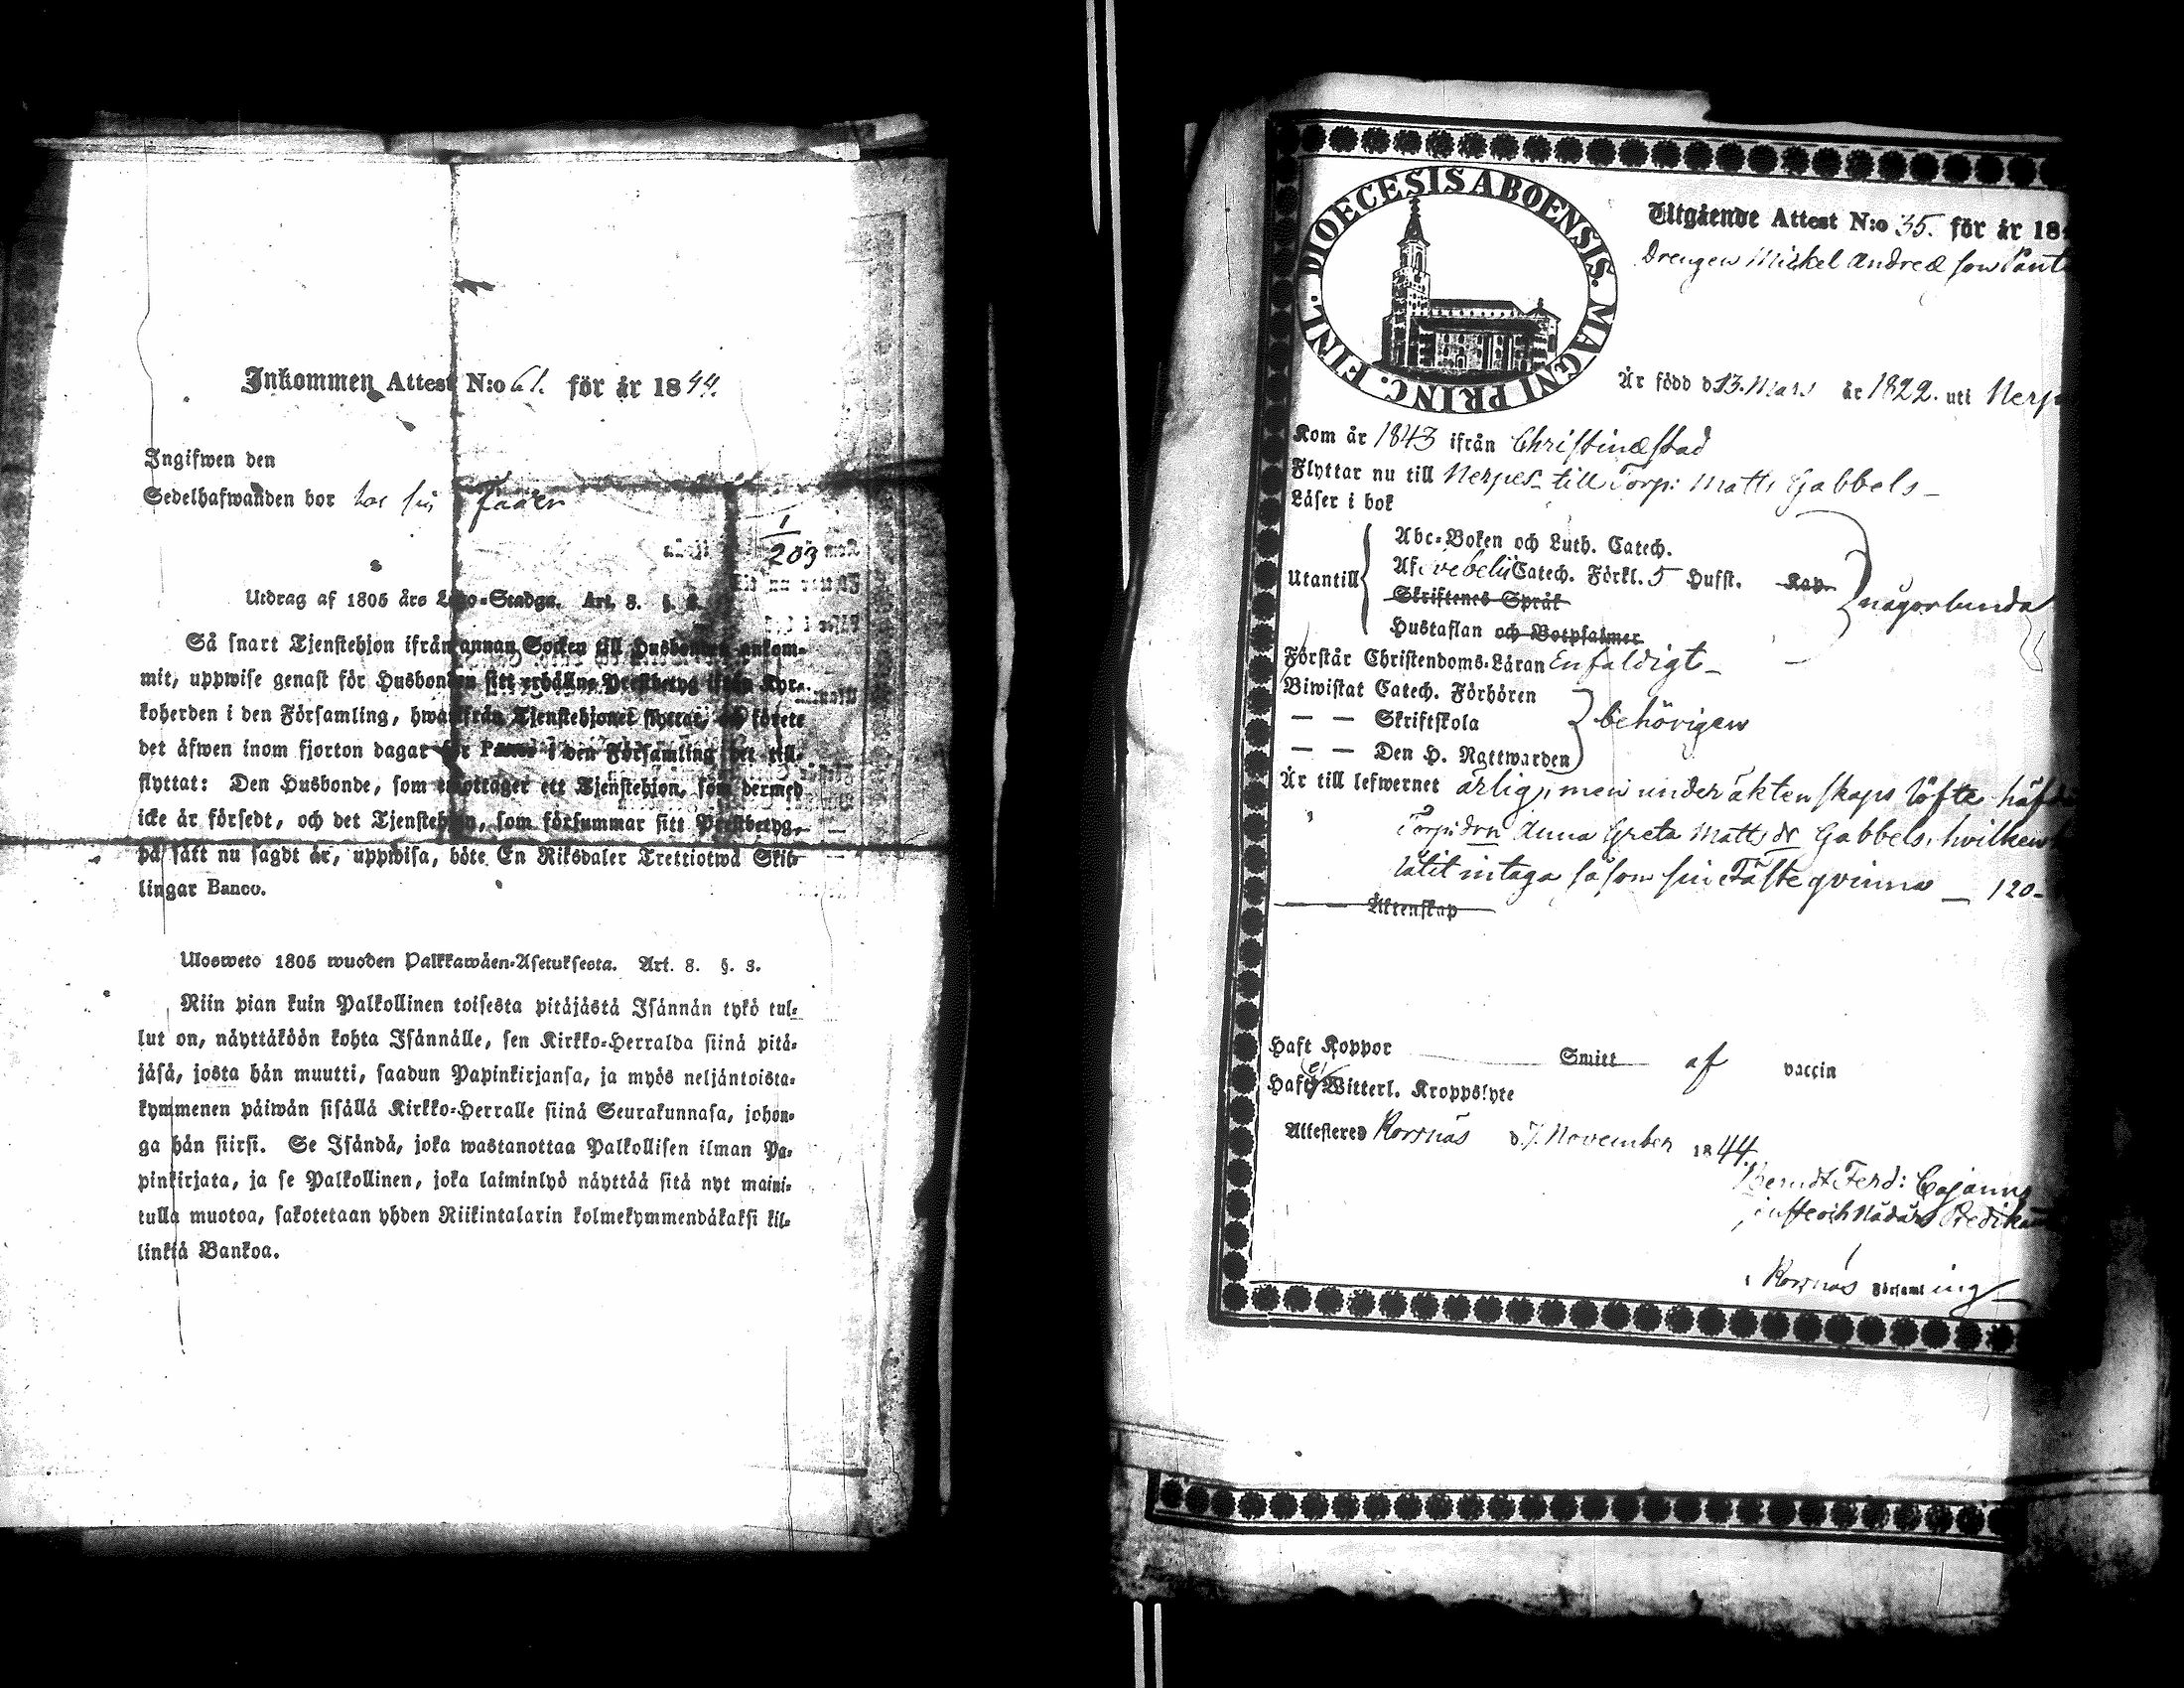 Inkommen Attest N:o 61. för år 1844.
Ingifwen den
Sedelhafwanden bor hos sin Fader
1
203
Utdrag af 1805 års Lego-Stadga. Art. 8. §. 3.
Så snart Tjenstehjon ifrån annan Socken till Husbonden ankom-
mit, uppwise genast för Husbonden sitt erhållne Prestbetyg ifrån Kyr-
koherden i den Församling, hwarifrån Tjenstehjonet flyttat, och förete
det äfwen inom fjorton dagar för Pastor i den Församling det till-
flyttat: Den Husbonde, som emottager ett Tjenstehjon, som dermed
icke är försedt, och det Tjenstehjon, som försummar sitt Prestbetyg,
på sätt nu sagdt är, uppwisa, böte En Riksdaler Trettiotwå Skil-
lingar Banco.
Ulosweto 1805 wuoden Palkkawäen-Asetuksesta. Art. 8. §. 3.
Niin pian kuin Palkollinen toisesta pitäjästä Isännän tykö tul-
lut on, näyttäköön kohta Isännälle, sen Kirkko-Herralda siinä pitä-
jäsä, josta hän muutti, saadun Papinkirjansa, ja myös neljäntoista-
kymmenen päiwän sisällä Kirkko-Herralle siinä Seurakunnasa, johon-
ga hän siirsi. Se Isändä, joka wastanottaa Palkollisen ilman Pa-
pinkirjata, ja se Palkollinen, joka laiminlyö näyttää sitä nyt maini-
tulla muotoa, sakotetaan yhden Riikintalarin kolmekymmendäkaksi kil-
linkiä Bankoa.
DIOECESIS ABOENSIS. MAGNI PRINC. FINL.
Utgående Attest N:o 35. för år 184
Drengen Mickel Andreæ son Pant
Är född d 13. Mars år 1822. uti Nerp
Kom år 1843 ifrån Christinæstad
Flyttar nu till Nerpes till Torp: Matts Gabbels
Läser i bok
Utantill
Abc-Boken och Luth. Catech.
Af Svebelii Catech. Förkl. 5 Hufst. Kap.
Skriftenes Språk
någorlunda
Hustaflan och Botpsalmer
Förstår Christendoms-Läran Enfaldigt
Biwistat Catech. Förhören
— — Skriftskola
behörigen
— — Den H. Nattwarden
Är till lefwernet ärlig, men under äktenskaps löfte häfd
Torp:drn Anna Greta Mattsdr Gabbels, hvilken
låtit intaga såsom sin Fästeqvinna — 120-
— — Äktenskap
Haft Koppor Smitt af vaccin
Haft ej Witterl. Kroppslyte
Attesteres Korrnäs d 7. November 1844.
Berndt Ferd: Cajanus
Predika
Korrnäs Församling